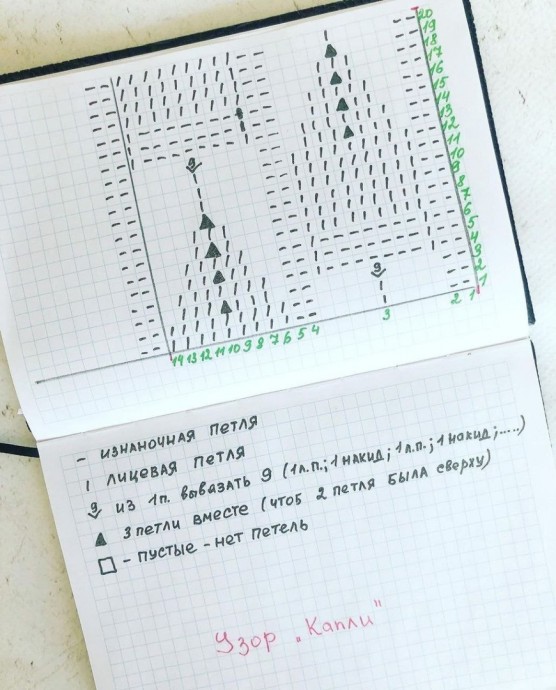 20
19
18
17
16
15
14
13
12
11
10
9
8
7
6
5
4
3
2
1
9
9
14 13 12 11 10 9 8 7 6 5 4 3 2 1
- изнаночная петля
ı лицевая петля
9 из 1п. вывазать 9 (1л.п.; 1 накид; 1л.п.; 1 накид;.....)
▲ 3 петли вместе (чтоб 2 петля была сверху)
□ - пустые - нет петель
Узор „Капли"